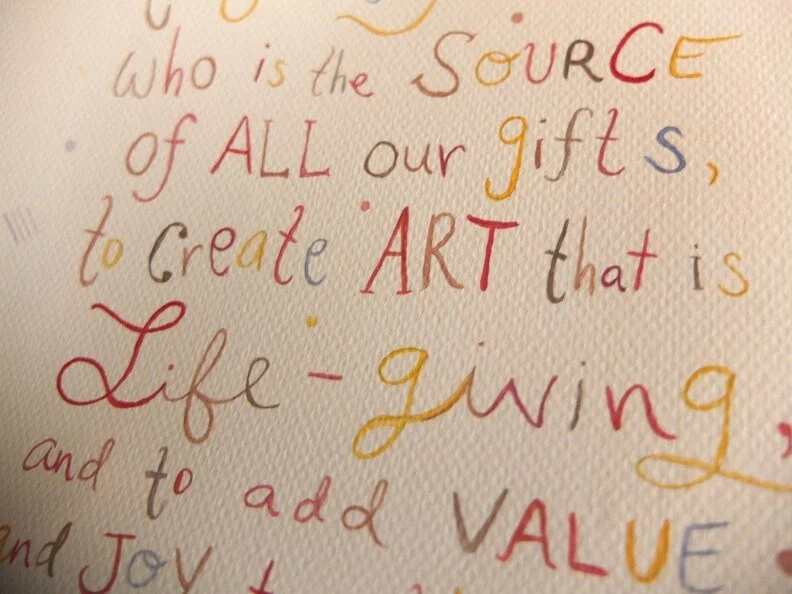 who is the SOURCE
of ALL our gifts,
to create ART that is
Life-giving,
and to add VALUE
and JOY